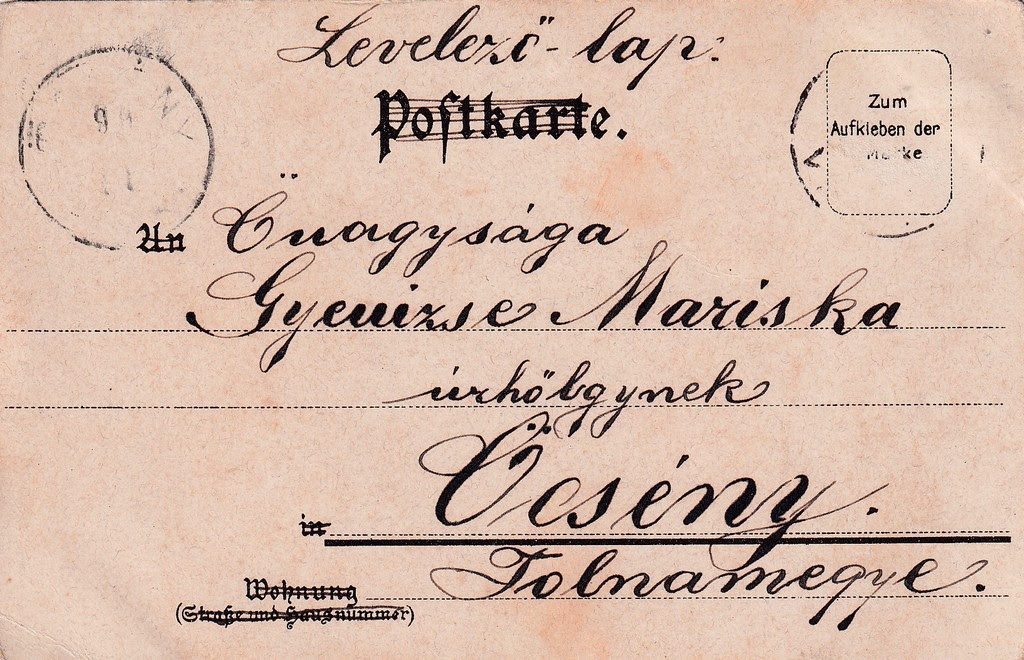 Levelező-lap.
Postkarte.
Zum
Aufkleben der
Marke
An Önagysága
Gyenizse Mariska
úrhölgynek
in Őcsény.
Tolnamegye.
Wohnung
(Straße und Hausnummer)